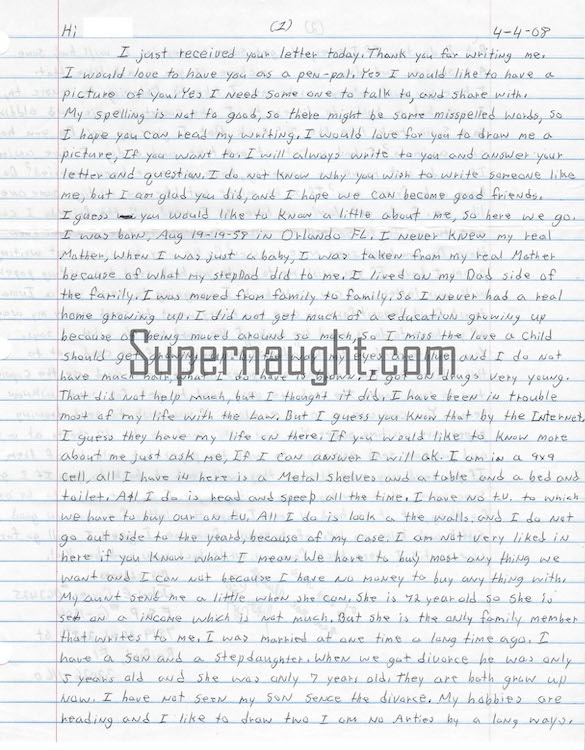 Hi (1) 4-4-08
I just received your letter today. Thank you for writing me.
I would love to have you as a pen-pal. Yes I would like to have a
picture of you. Yes I need some one to talk to, and share with.
My spelling is not to good, so there might be some misspelled words, so
I hope you can read my writing. I would love for you to draw me a
picture, If you want to. I will always write to you and answer your
letter and question. I do not know why you wish to write someone like
me, but I am glad you did, and I hope we can become good friends.
I guess you would like to know a little about me, so here we go.
I was born, Aug 19-19-58 in Orlando FL. I never knew my real
Mother, When I was just a baby, I was taken from my real Mother
because of what my stepDad did to me. I lived on my Dad side of
the family. I was moved from family to family, so I never had a real
home growing up. I did not get much of a education growing up
because of being moved around so much, So I miss the love a Child
should get growing up. by the way my eyes are blue and I do not
have much hair, what I do have is brown. I got on drugs very young.
Supernaught.com
That did not help much, but I thought it did. I have been in trouble
most of my life with the Law. But I guess you know that by the Internet,
I guess they have my life on there. If you would like to know more
about me just ask me, If I can answer I will ok. I am in a 9x9
cell, all I have in here is a Metal shelves and a table and a bed and
toilet. All I do is read and speep all the time. I have no t.v. to which
we have to buy our on t.v. All I do is look a the walls. and I do not
go out side to the yeard, because of my case. I am not very liked in
here if you know what I mean. We have to buy most any thing we
want and I can not because I have no money to buy any thing with.
My aunt send me a little when she can. She is 72 year old so she is
set on a income which is not much. But she is the only family member
that writes to me. I was married at one time a long time ago. I
have a son and a stepdaughter. When we got divorce he was only
5 years old and she was only 7 years old. They are both grown up
now. I have not seen my son sence the divorce. My hobbies are
reading and I like to draw two I am no Arties by a long ways.